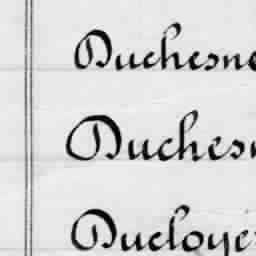 Duchesne
Duchesn
Ducloye